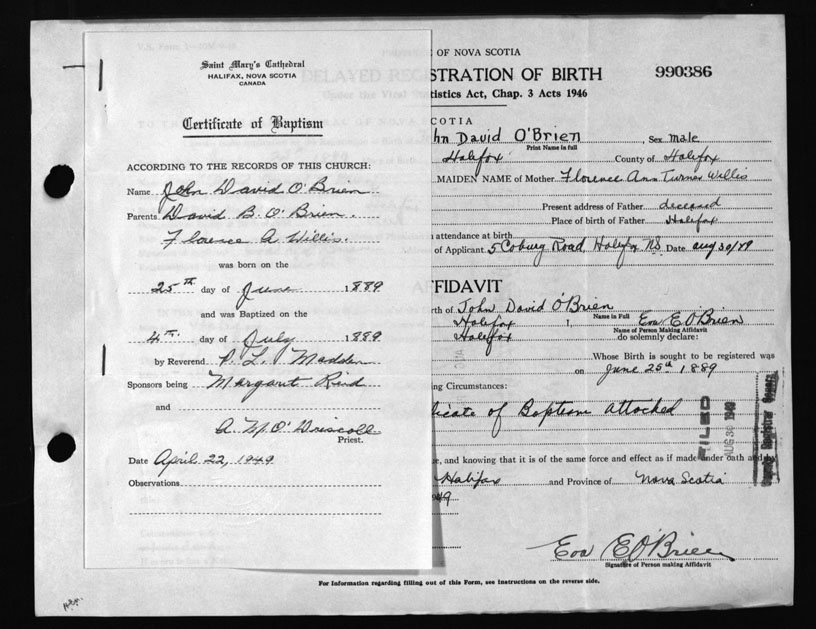 Saint Mary's Cathedral
HALIFAX, NOVA SCOTIA
CANADA
Certificate of Baptism
ACCORDING TO THE RECORDS OF THIS CHURCH:
Name John David O'Brien
Parents David B. O'Brien.
Florence A. Willis.
was born on the
25th day of June 1889
and was Baptized on the
4th day of July 1889
by Reverend P. L. Madden
Sponsors being Margaret
and
A. M. O'Driscoll
Priest.
Date April 22, 1949
Observations
OF NOVA SCOTIA
STRATION OF BIRTH 990386
tistics Act, Chap. 3 Acts 1946
COTIA
hn David O'Brien, Sex male
Print Name in full
Halifax County of Halifax
MAIDEN NAME of Mother Florence Ann Turner Willis
Present address of Father deceased
Place of birth of Father Halifax
attendance at birth
of Applicant 5 Coburg Road, Halifax NS Date Aug 30/49
AFFIDAVIT
rth of John David O'Brien
Name in Full
Halifax I, Eva E O'Brien
Name of Person Making Affidavit
Halifax do solemnly declare:
Whose Birth is sought to be registered was
on June 25th 1889
ing Circumstances:
ficate of Baptism attached
FILED
AUG 30 1949
e, and knowing that it is of the same force and effect as if made under oath and by
Halifax and Province of Nova Scotia
949
Eva E O'Brien
Signature of Person making Affidavit
For Information regarding filling out of this Form, see Instructions on the reverse side.